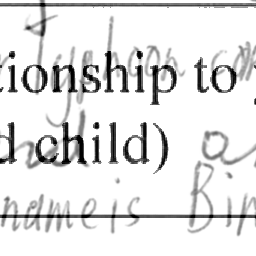 Typhoon com
tionship to
d child) a
name is Bin